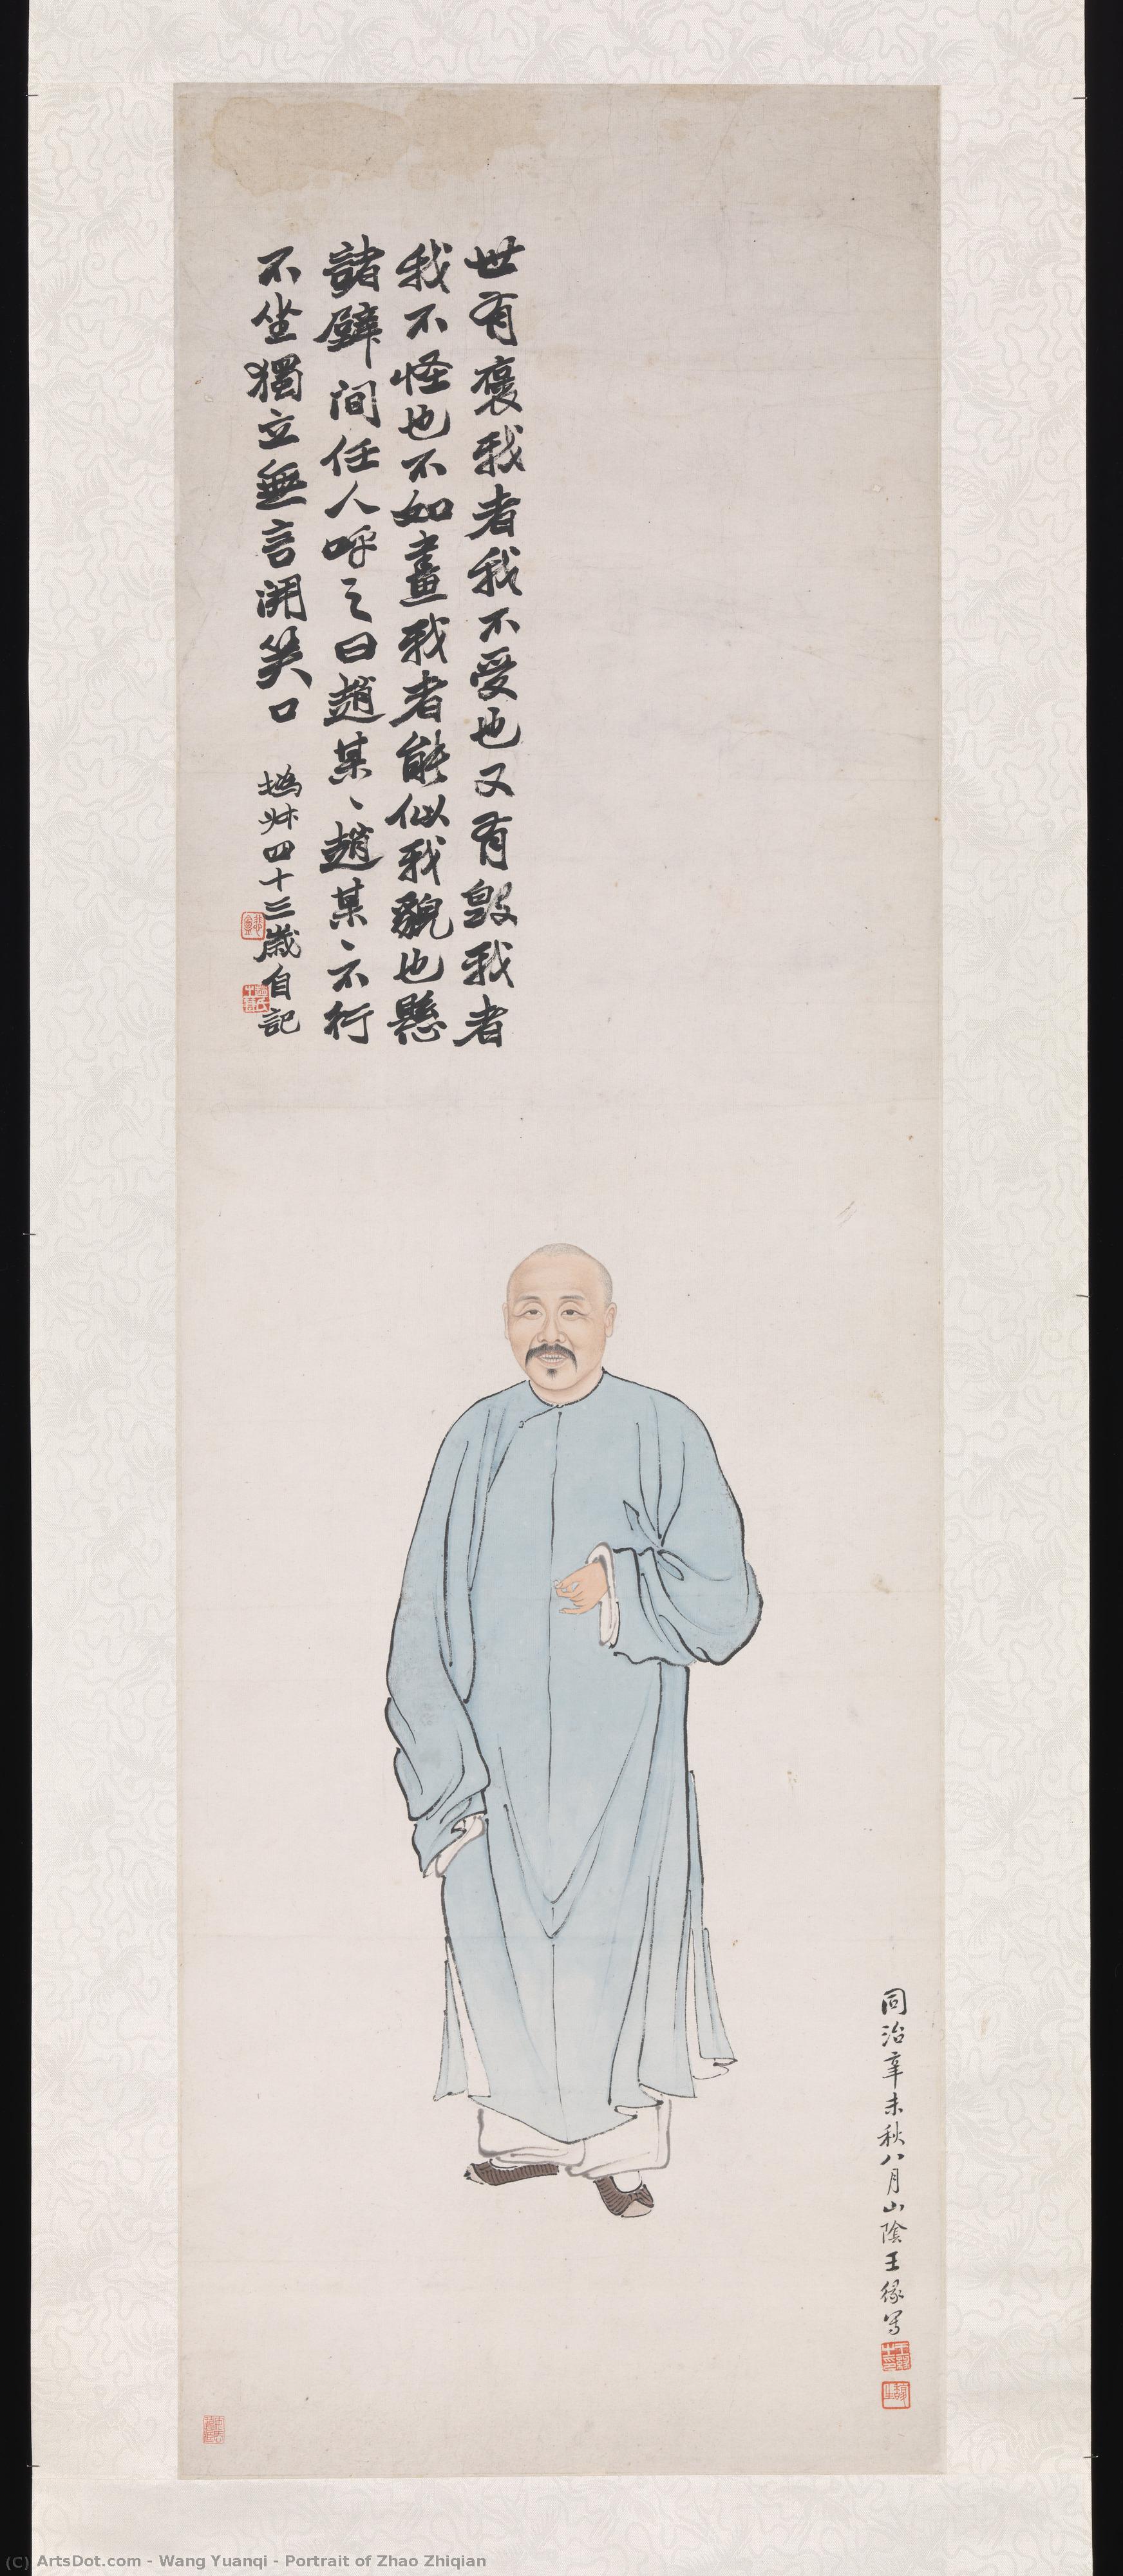 世有褒我者我不受也又有毀我者
我不怪也不如畫我者能似我貌也懸
諸壁間任人呼之曰趙某、趙某、不行
不坐獨立無言開笑口
撝叔四十三歲自記
同治辛未秋八月山陰王緣写
(C) ArtsDot.com - Wang Yuanqi - Portrait of Zhao Zhiqian